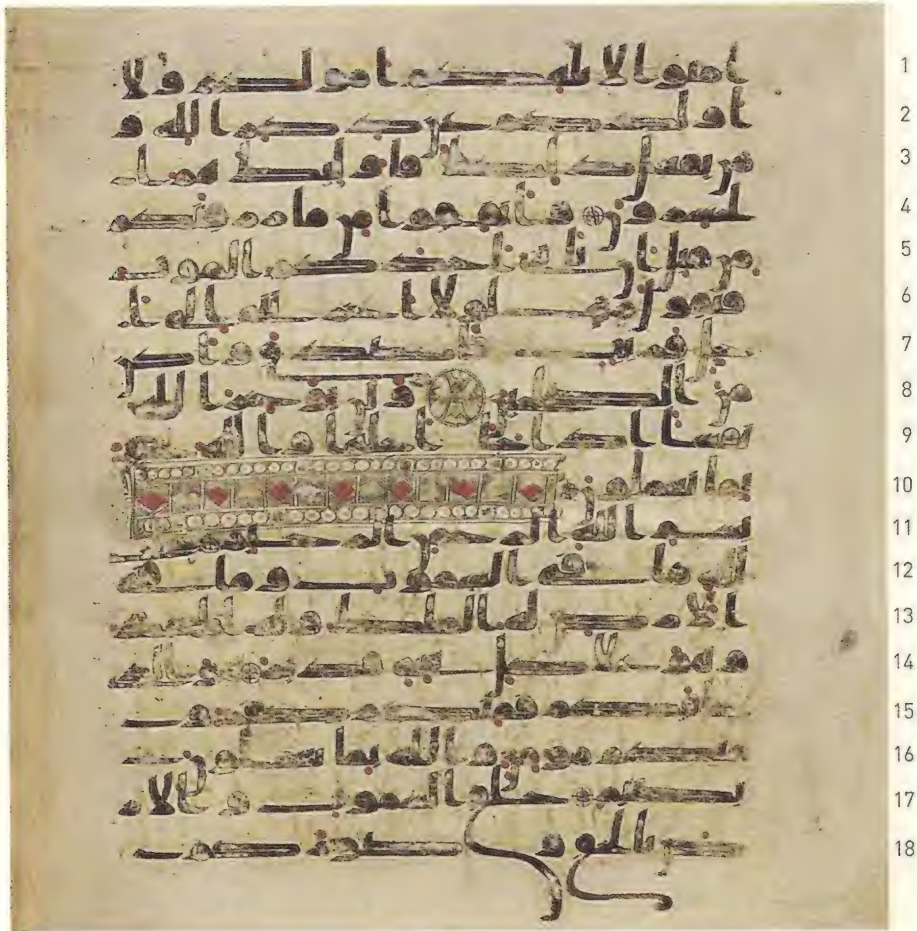 امنوا لا تلهكم امولكم ولا 1
اولدكم عن ذكر الله و 2
من يفعل ذلك فاوليك هم ا 3
لخسرون وانفقوا من ما رزقنكم 4
من قبل ان ياتي احدكم الموت 5
فيقول رب لولا اخرتني الى ا 6
جل قريب فاصدق واكن 7
من الصلحين ولن يوخر الله 8
نفسا اذا جا اجلها والله خبير 9
بما تعملون 10
بسم الله الرحمن الرحيم يسبح 11
لله ما في السموت وما في 12
الارض له الملك وله الحمد 13
وهو على كل شي قدير هو الذي 14
خلقكم فمنكم كافر و 15
منكم مومن والله بما تعملون 16
بصير خلق السموت والا 17
رض بالحق وصوركم 18